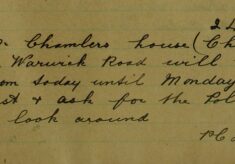 24
Chamlers house (Ch
Warwick Road will
om today until Monday
st & ask for the Pol
look around
PC